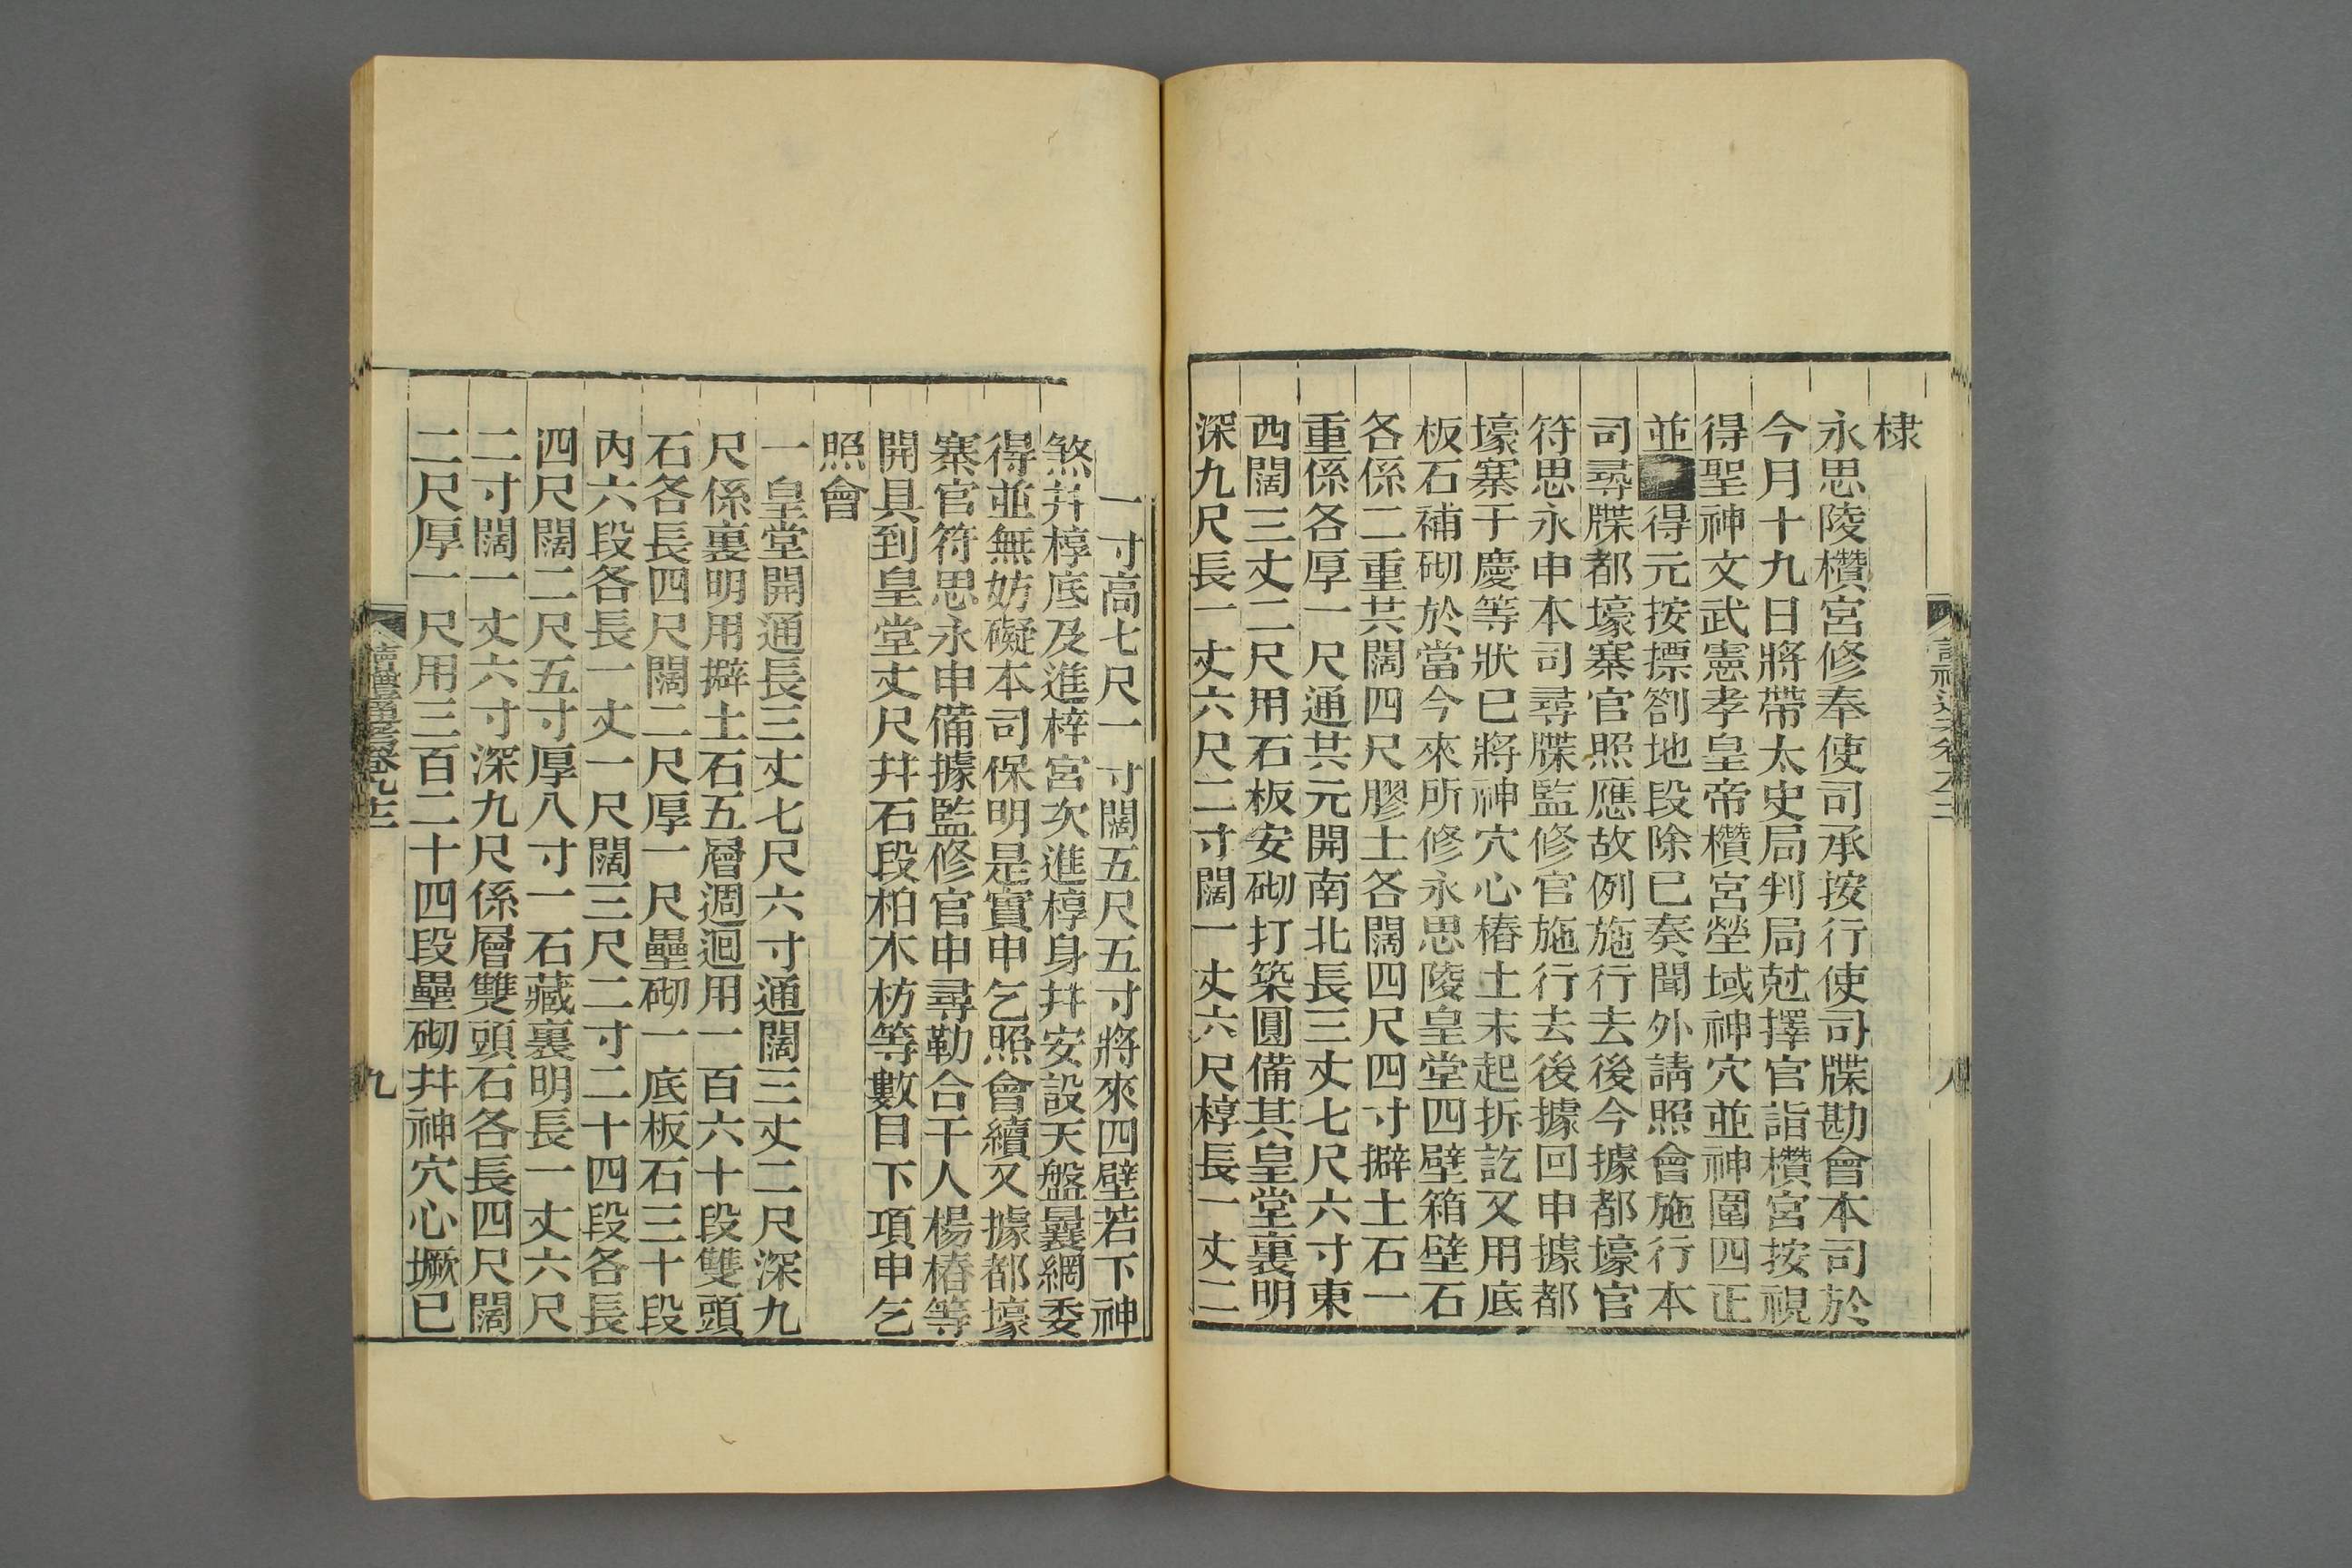 棣
永思陵欑宮修奉使司承按行使司牒勘會本司於
今月十九日將帶太史局判局尅擇官詣欑宮按視
得聖神文武憲孝皇帝欑宮塋域神穴並神圍四正
並得元按摽劄地段除已奏聞外請照會施行本
司尋牒都壕寨官照應故例施行去後今據都壕官
符思永申本司尋牒監修官施行去後據回申據都
壕寨于慶等狀已將神穴心樁土末起拆訖又用底
板石補砌於當今來所修永思陵皇堂四壁箱壁石
各係二重共闊四尺膠土各闊四尺四寸擗土石一
重係各厚一尺通共元開南北長三丈七尺六寸東
西闊三丈二尺用石板安砌打築圓備其皇堂裏明
深九尺長一丈六尺二寸闊一丈六尺椁長一丈二
一寸高七尺一寸闊五尺五寸將來四壁若下神
煞并椁底及進梓宮次進椁身并安設天盤曩網委
得並無妨礙本司保明是實申乞照會續又據都壕
寨官符思永申備據監修官申尋勒合干人楊椿等
開具到皇堂丈尺并石段柏木枋等數目下項申乞
照會
一皇堂開通長三丈七尺六寸通闊三丈二尺深九
尺係裏明用擗土石五層週迴用一百六十段雙頭
石各長四尺闊二尺厚一尺壘砌一底板石三十段
內六段各長一丈一尺闊三尺二寸二十四段各長
四尺闊二尺五寸厚八寸一石藏裏明長一丈六尺
二寸闊一丈六寸深九尺係層雙頭石各長四尺闊
二尺厚一尺用三百二十四段壘砌并神穴心橛已
九